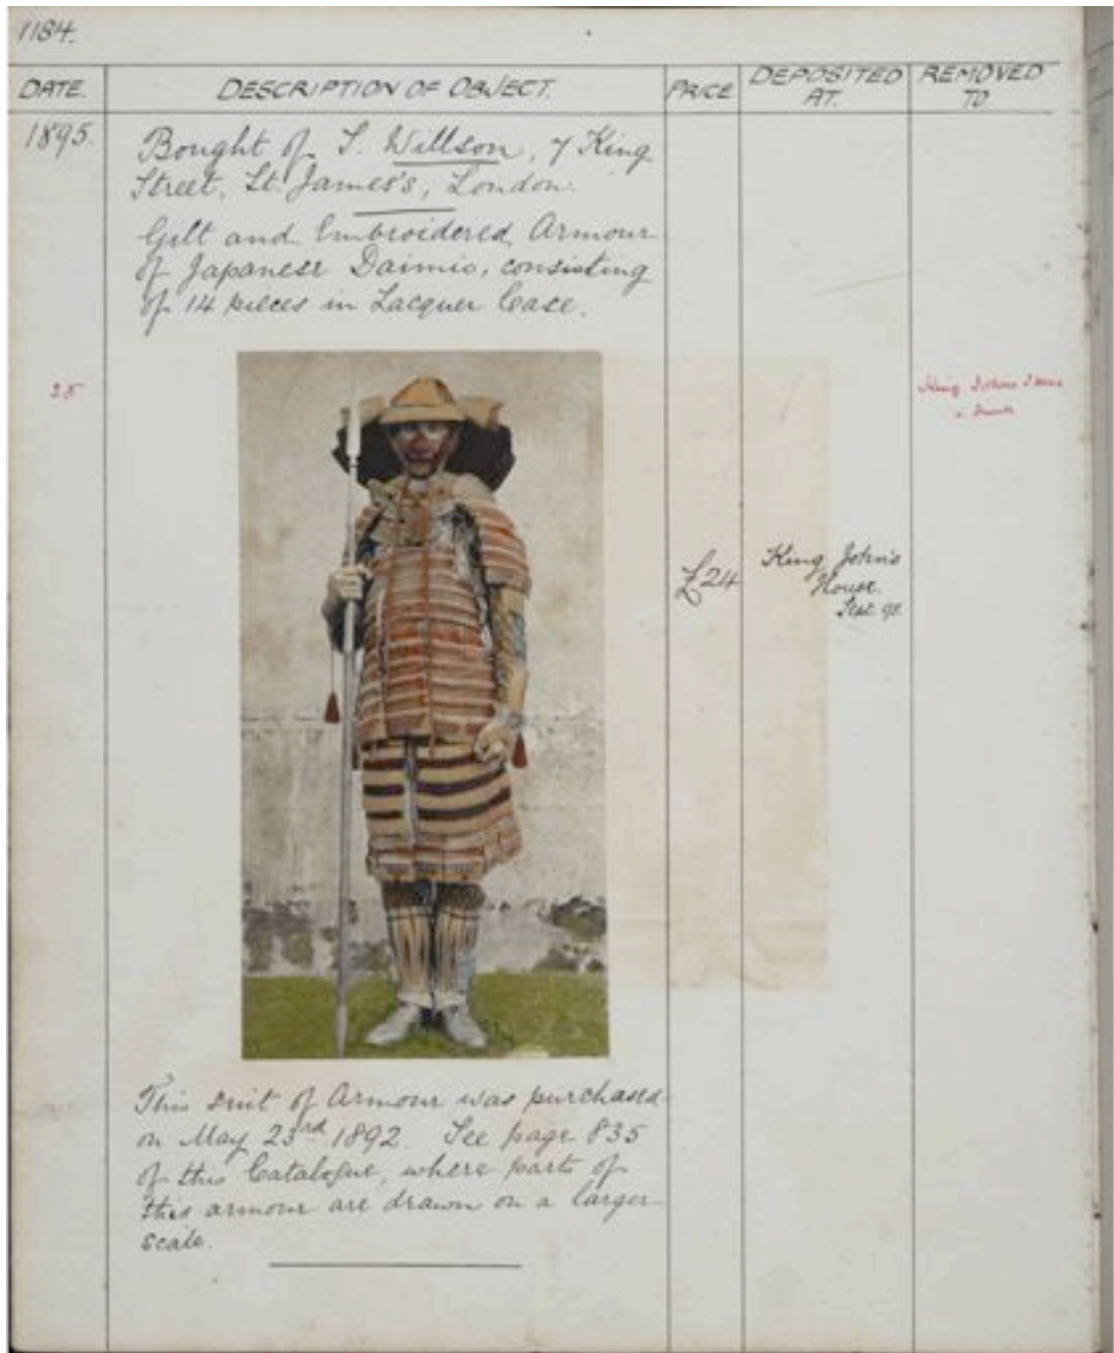 1184.
DATE. DESCRIPTION OF OBJECT. PRICE DEPOSITED AT. REMOVED TO
1895. Bought of S. Willson, 7 King
Street, St. James's, London.
Gilt and Embroidered Armour
of Japanese Daimio, consisting
of 14 pieces in Lacquer Case.
25
King Johns
£24
King John's
House.
Sept. 95.
This suit of Armour was purchased
on May 23rd 1892. See page 835
of this Catalogue, where parts of
this armour are drawn on a larger
scale.